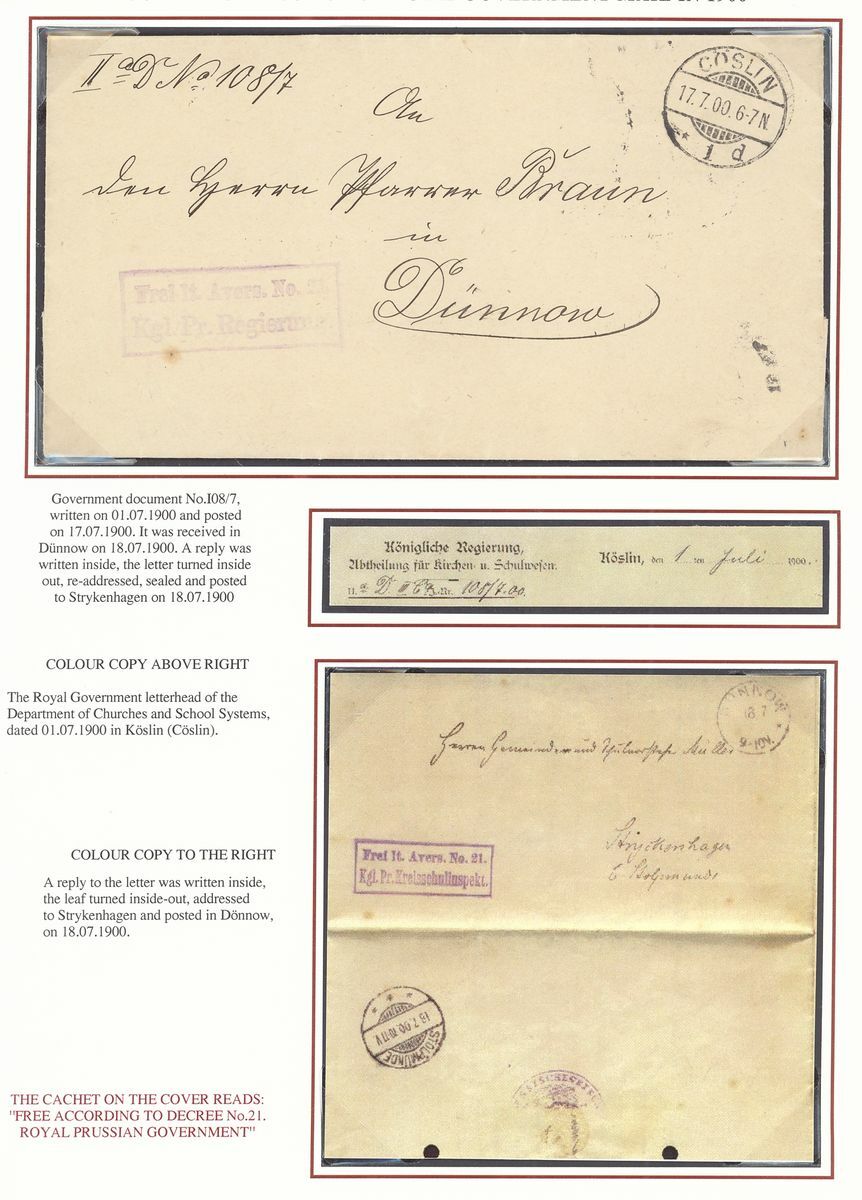 GOVERNMENT MAIL IN 1900
IIa D No 108/7
CÖSLIN
17.7.00.6-7N.
* 1 d
An
den Herrn Pfarrer Braun
in
Dünnow
Frei lt. Avers. No. 21.
Kgl. Pr. Regierung
Government document No.I08/7,
written on 01.07.1900 and posted
on 17.07.1900. It was received in
Dünnow on 18.07.1900. A reply was
written inside, the letter turned inside
out, re-addressed, sealed and posted
to Strykenhagen on 18.07.1900
Königliche Regierung,
Abtheilung für Kirchen- u. Schulwesen.
Köslin, den 1 ten Juli 1900.
II. a D. Nr. 108/7.00.
COLOUR COPY ABOVE RIGHT
The Royal Government letterhead of the
Department of Churches and School Systems,
dated 01.07.1900 in Köslin (Cöslin).
NNOW
18 7
9-10V.
Herrn Gemeinde und Schulvorsteher Müller
Strickenhagen
b Stolpmünde
Frei lt. Avers. No. 21.
Kgl. Pr. Kreisschulinspekt.
COLOUR COPY TO THE RIGHT
A reply to the letter was written inside,
the leaf turned inside-out, addressed
to Strykenhagen and posted in Dönnow,
on 18.07.1900.
18.7.00.10-11V.
STOLPMÜNDE
THE CACHET ON THE COVER READS:
"FREE ACCORDING TO DECREE No.21.
ROYAL PRUSSIAN GOVERNMENT"